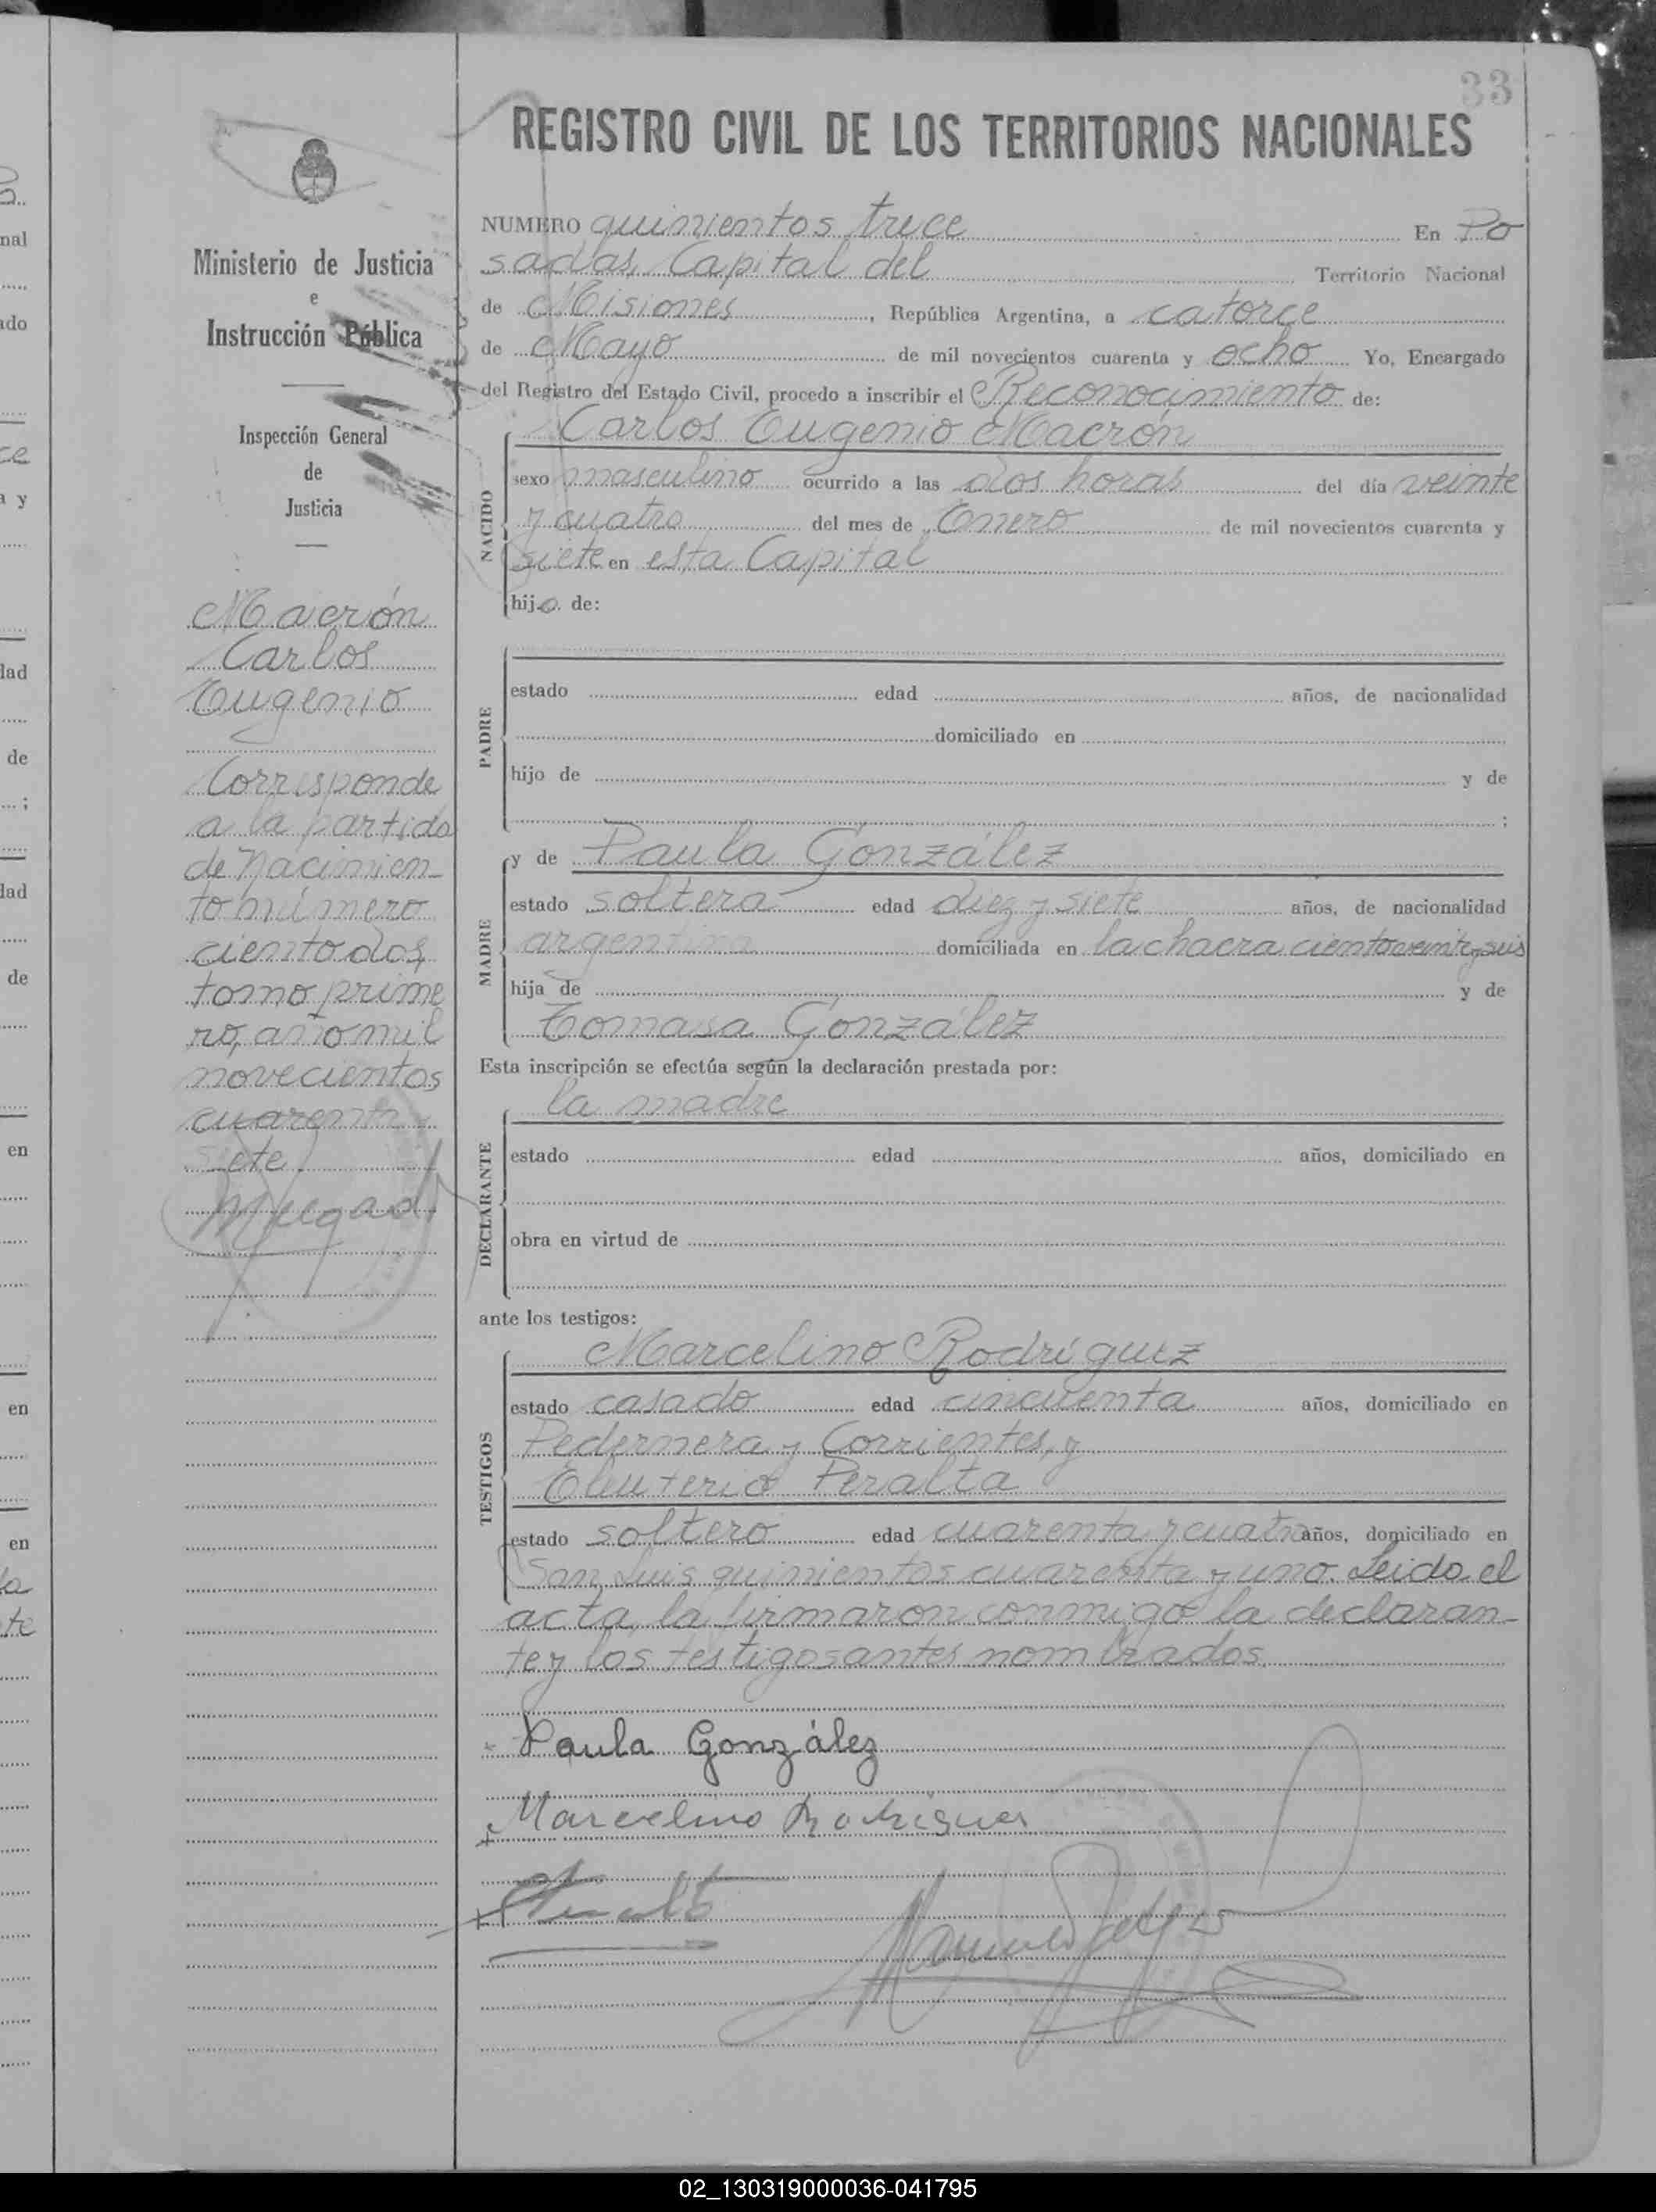 33
REGISTRO CIVIL DE LOS TERRITORIOS NACIONALES
Ministerio de Justicia
e
Instrucción Pública
Inspección General
de
Justicia
Macrón
Carlos
Eugenio
Corresponde
a la partida
de Nacimien-
to número
ciento dos,
tomo prime
ro, año mil
novecientos
cuarenta y
siete
NUMERO quinientos trece En Po
sadas, Capital del Territorio Nacional
de Misiones, República Argentina, a catorce
de Mayo de mil novecientos cuarenta y ocho Yo, Encargado
del Registro del Estado Civil, procedo a inscribir el Reconocimiento de:
NACIDO
Carlos Eugenio Macrón
sexo masculino ocurrido a las dos horas del día veinte
y cuatro del mes de Enero de mil novecientos cuarenta y
siete en esta Capital
hijo de:
PADRE
estado edad años, de nacionalidad
domiciliado en
hijo de y de
;
MADRE
y de Paula González
estado soltera edad diez y siete años, de nacionalidad
argentina domiciliada en la chacra ciento veinte y seis
hija de y de
Tomasa González
Esta inscripción se efectúa según la declaración prestada por:
DECLARANTE
la madre
estado edad años, domiciliado en
obra en virtud de
ante los testigos:
TESTIGOS
Marcelino Rodríguez
estado casado edad cincuenta años, domiciliado en
Pedernera y Corrientes, y
Eleuterio Peralta
estado soltero edad cuarenta y cuatro años, domiciliado en
San Luis quinientos cuarenta y uno. Leida el
acta, la firmaron conmigo la declaran-
te y los testigos antes nombrados.
Paula González
Marcelino Rodrigues
02_130319000036-041795